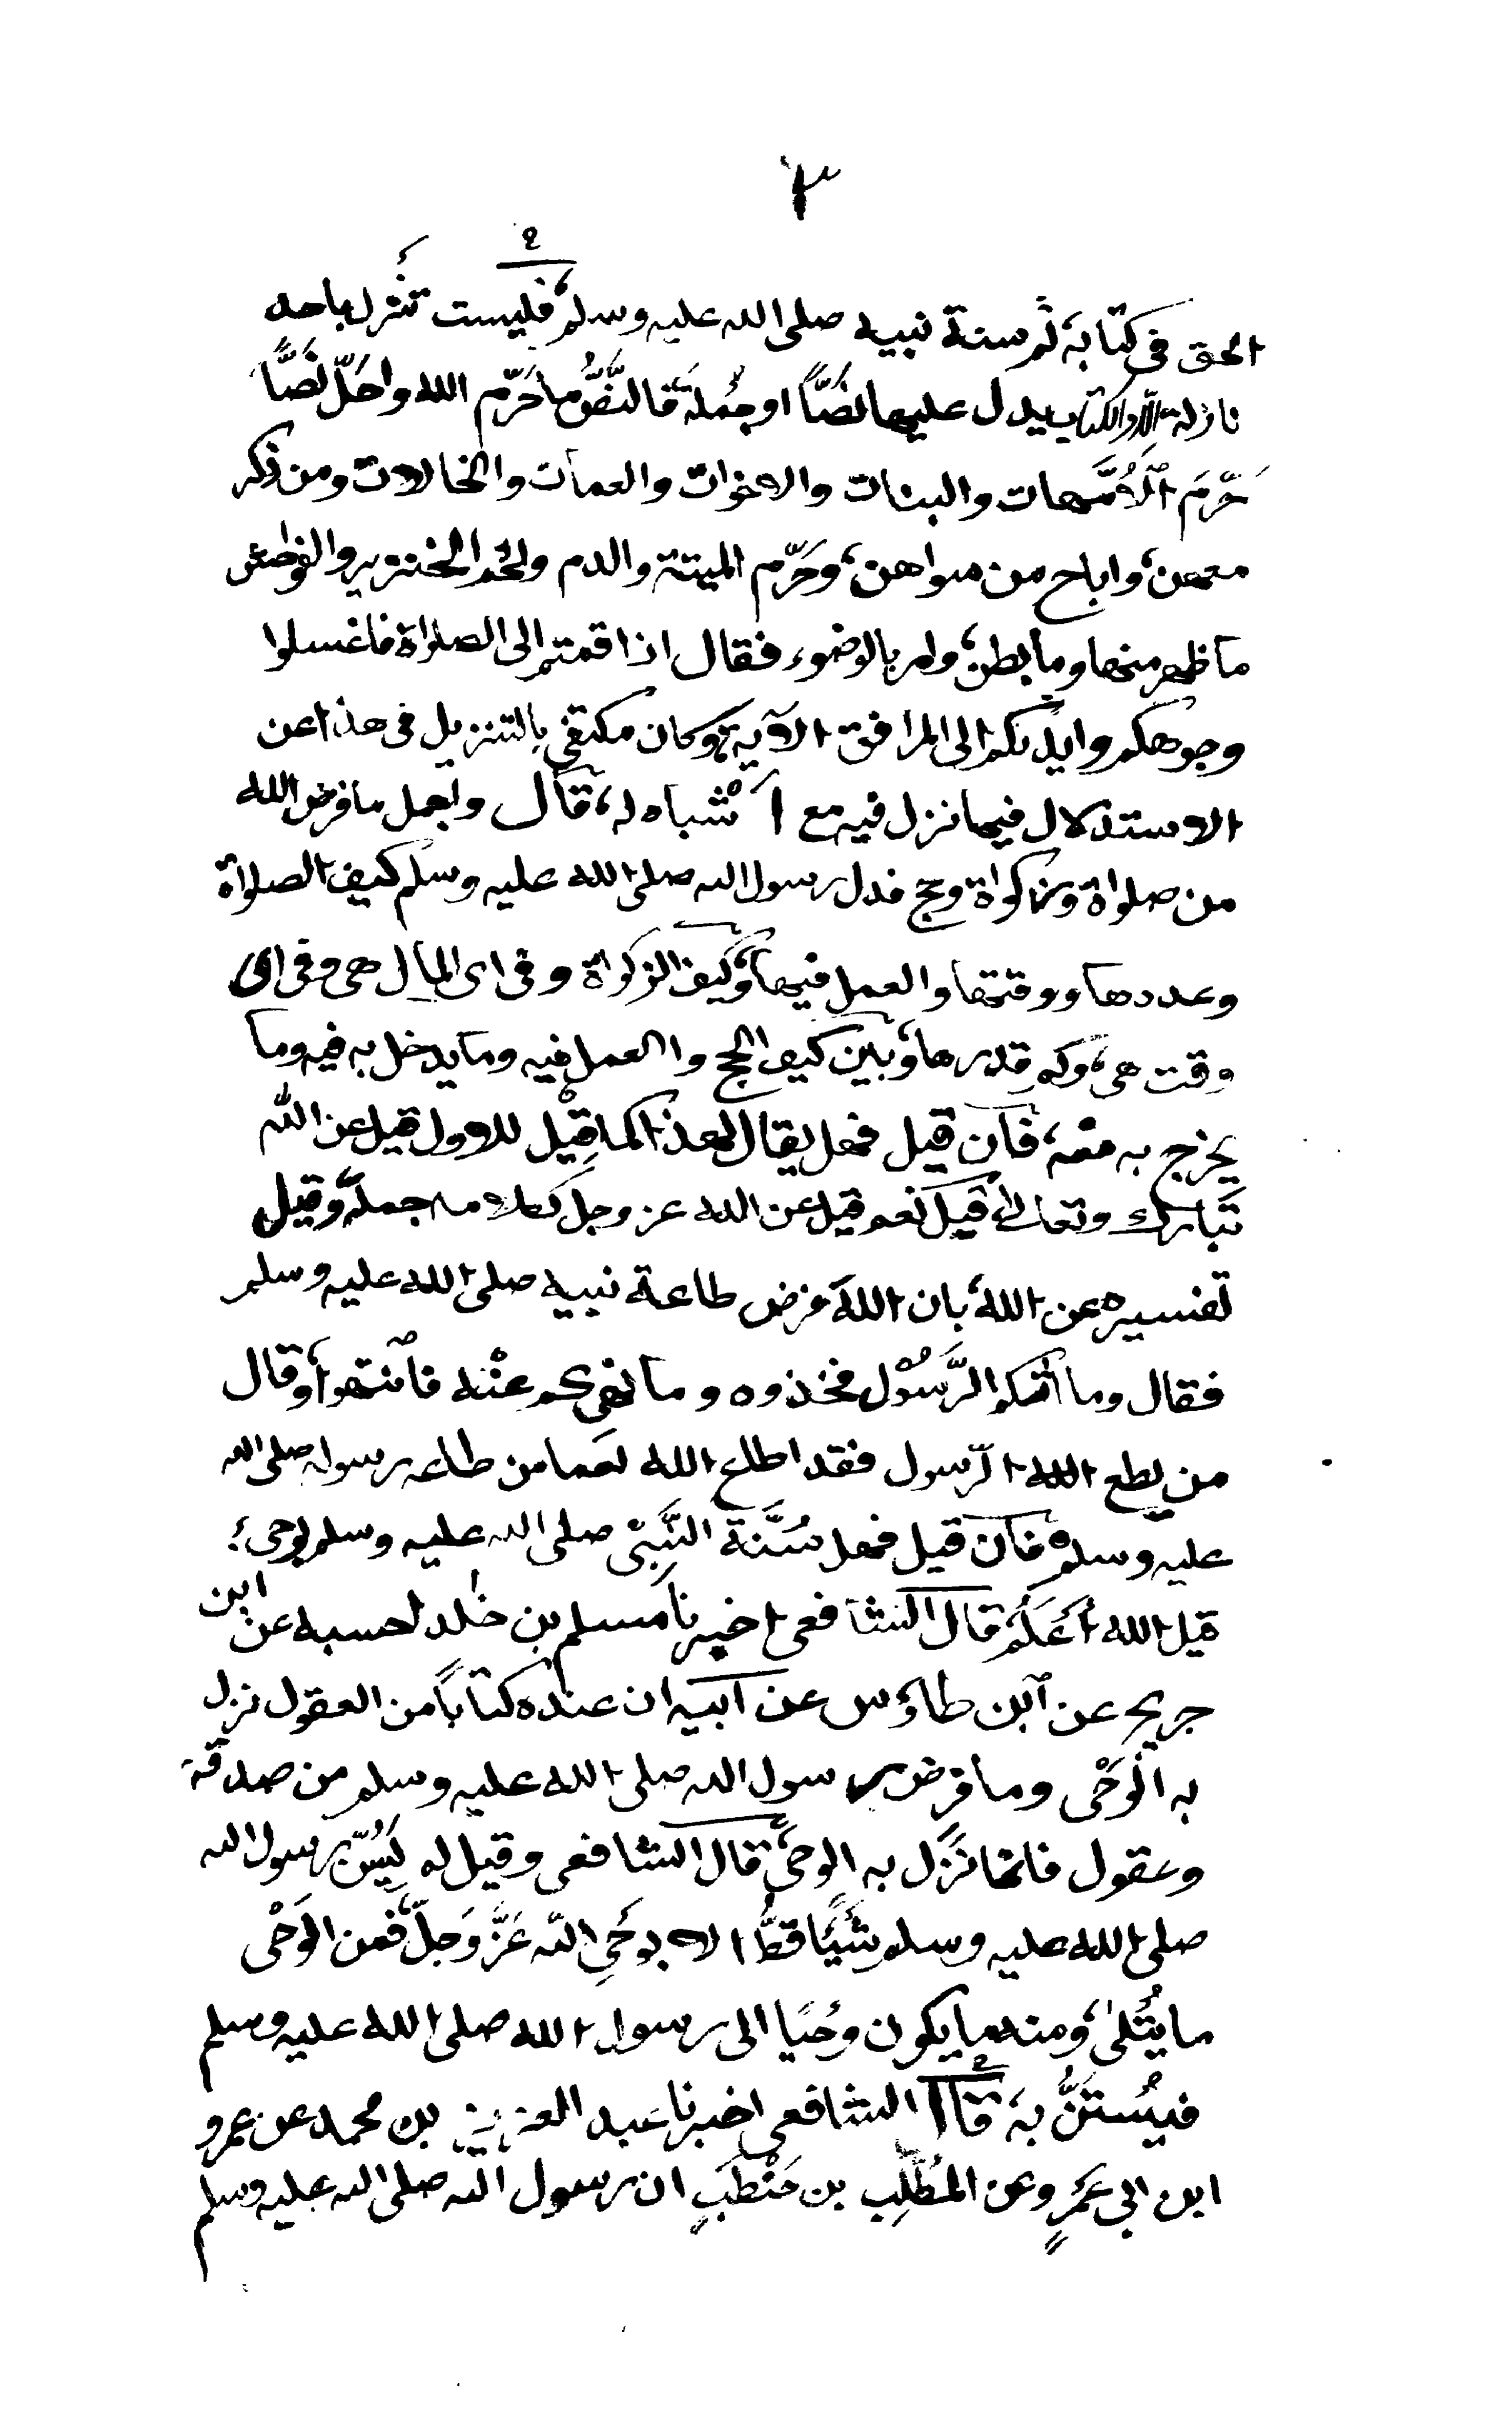 ٣
الحق فى كتابه، ثم سنة نبيه صلى الله عليه وسلم، فليست تنزل باحد
نازلة الا والكتاب يدل عليها نَصًّا او جُملةً، فالنَّصُّ ما حَرّم الله واحَلّ نَصًّا
حَرّمَ الْاُمَّهات والبنات والاخوات والعمات والخالات ومن ذكر
معهن، واباح من سواهن، وحَرّم الميتة والدم ولحم الخنزير والفواحش
ما ظهر منها وما بطن، وامر بالوضوء فقال اذا قمتم الى الصلواة فاغسلوا
وجوهكم وايديكم الى المرافق الآية، وكان مكتفى بالتنزيل فى هذا عن
الاستدلال فيما نزل فيه مع اَشْباه له، قال واجمل ما فرض الله
من صلواة وزكواة وحج فدل رسول الله صلى الله عليه وسلم كيف الصلواة
وعددها ووقتها والعمل فيها، وكيف الزكواة وفى اى المال هى وفى اى
وقت هى، وكم قدرها، وبين كيف الحج والعمل فيه وما يدخل به فيه وما
يخرج به منه، فان قيل فهل يقال لهذا كما قِيْل للاول قيل عن الله
تبارك وتعالى، قيل نعم قيل عن الله عز وجل كلامه جملةً، وقيل
تفسيره عن الله، بان الله فرض طاعة نبيه صلى الله عليه وسلم
فقال وما اتٰكم الرَّسُوْل فخذوه وما نهٰىكم عنْه فانتهوا، وقال
من يطع الله الرّسول فقد اطاع الله لهما من طاعه رسوله صلى الله
عليه وسلم، فان قيل فهل سُنَّة النَّبىّ صلى الله عليه وسلم بوحى؟
قيل الله اَعْلَمُ، قال الشافعى اخبرنا مسلم بن خٰلد احسبه عن ابن
جريج عن ابن طاؤس عن ابيه ان عنده كتابًا من العقول نزل
به الوَحْى وما فرض رسول الله صلى الله عليه وسلم من صدقة
وعقول فانما نَزَل به الوحىُ، قال الشافعى وقيل له يَسُنّ رسول الله
صلى الله عليه وسلم شَيْئًا قطُّ الا بوَحْىِ الله عَزَّ وَجَلّ، فمن الوَحْى
ما يُتْلىٰ، ومنه ما يكون وَحْيًا الى رسول الله صلى الله عليه وسلم
فيُستَنُّ به، قال الشافعى اخبرنا عبد العزيز بن محمد عن عمرو
ابن ابى عَمْرٍو عن المُطَّلِب بن حَنْطَبٍ ان رسول الله صلى الله عليه وسلم